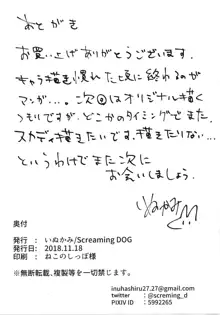 あとがき
お買い上げありがとうございます。
キャラ描き慣れた頃に終わるのが
マンガ…。次回はオリジナル描く
つもりですが、どこかのタイミングでまた
スカディ描きたいです。描きたりない…
というわけでまた次に
お会いしましょう。
いぬかみ
奥付
発行 : いぬかみ/Screaming DOG
発行日 : 2018.11.18
印刷 : ねこのしっぽ様
※無断転載、複製等を一切禁じます。
inuhashiru27.27@gmail.com
twitter : @screming_d
PIXIV ID : 5992265